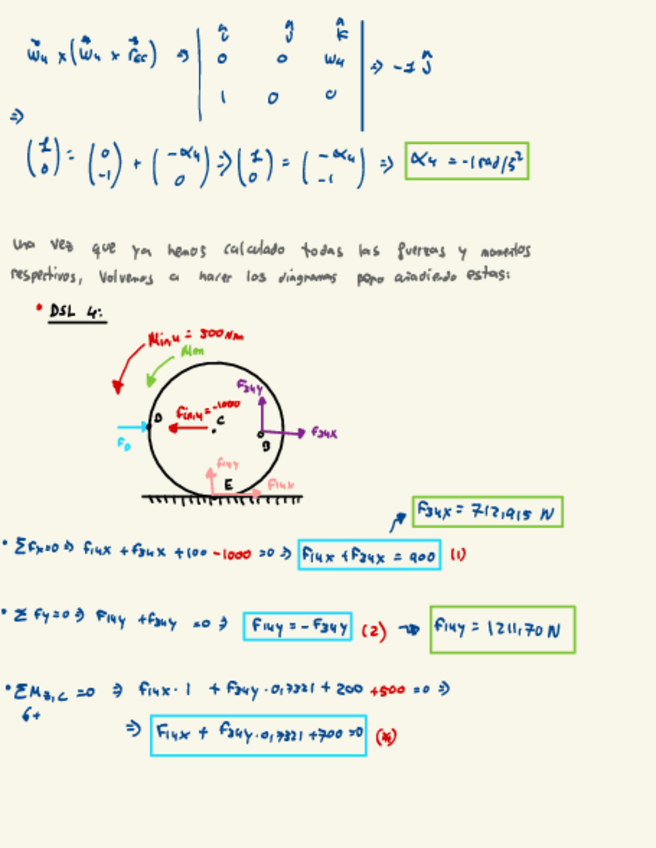 ω⃗₄ x (ω⃗₄ x r⃗EC) ⇒ | î ĵ k̂ |
| 0 0 ω₄ | ⇒ -1 ĵ
| 1 0 0 |
⇒
(1 0) = (0 -1) + (-α₄ 0) ⇒ (1 0) = (-α₄ -1) ⇒ α₄ = -1 rad/s²
Una vez que ya hemos calculado todas las fuerzas y momentos
respectivos, Volvemos a hacer los diagramas pero añadiendo estas:
• DSL 4:
Min,4 = 500 Nm
Mm
F34y
Fin,4 = -1000
D
C
F34x
FD
B
F14y
E
F14x
F34x = 712,915 N
• ΣFx=0 ⇒ F14x + F34x + 100 - 1000 = 0 ⇒ F14x + F34x = 900 (1)
• ΣFy=0 ⇒ F14y + F34y = 0 ⇒ F14y = -F34y (2) → F14y = 1211,70 N
• ΣMz,C = 0 ⇒ F14x · 1 + F34y · 0,7321 + 200 + 500 = 0 ⇒
⇒ F14x + F34y · 0,7321 + 700 = 0